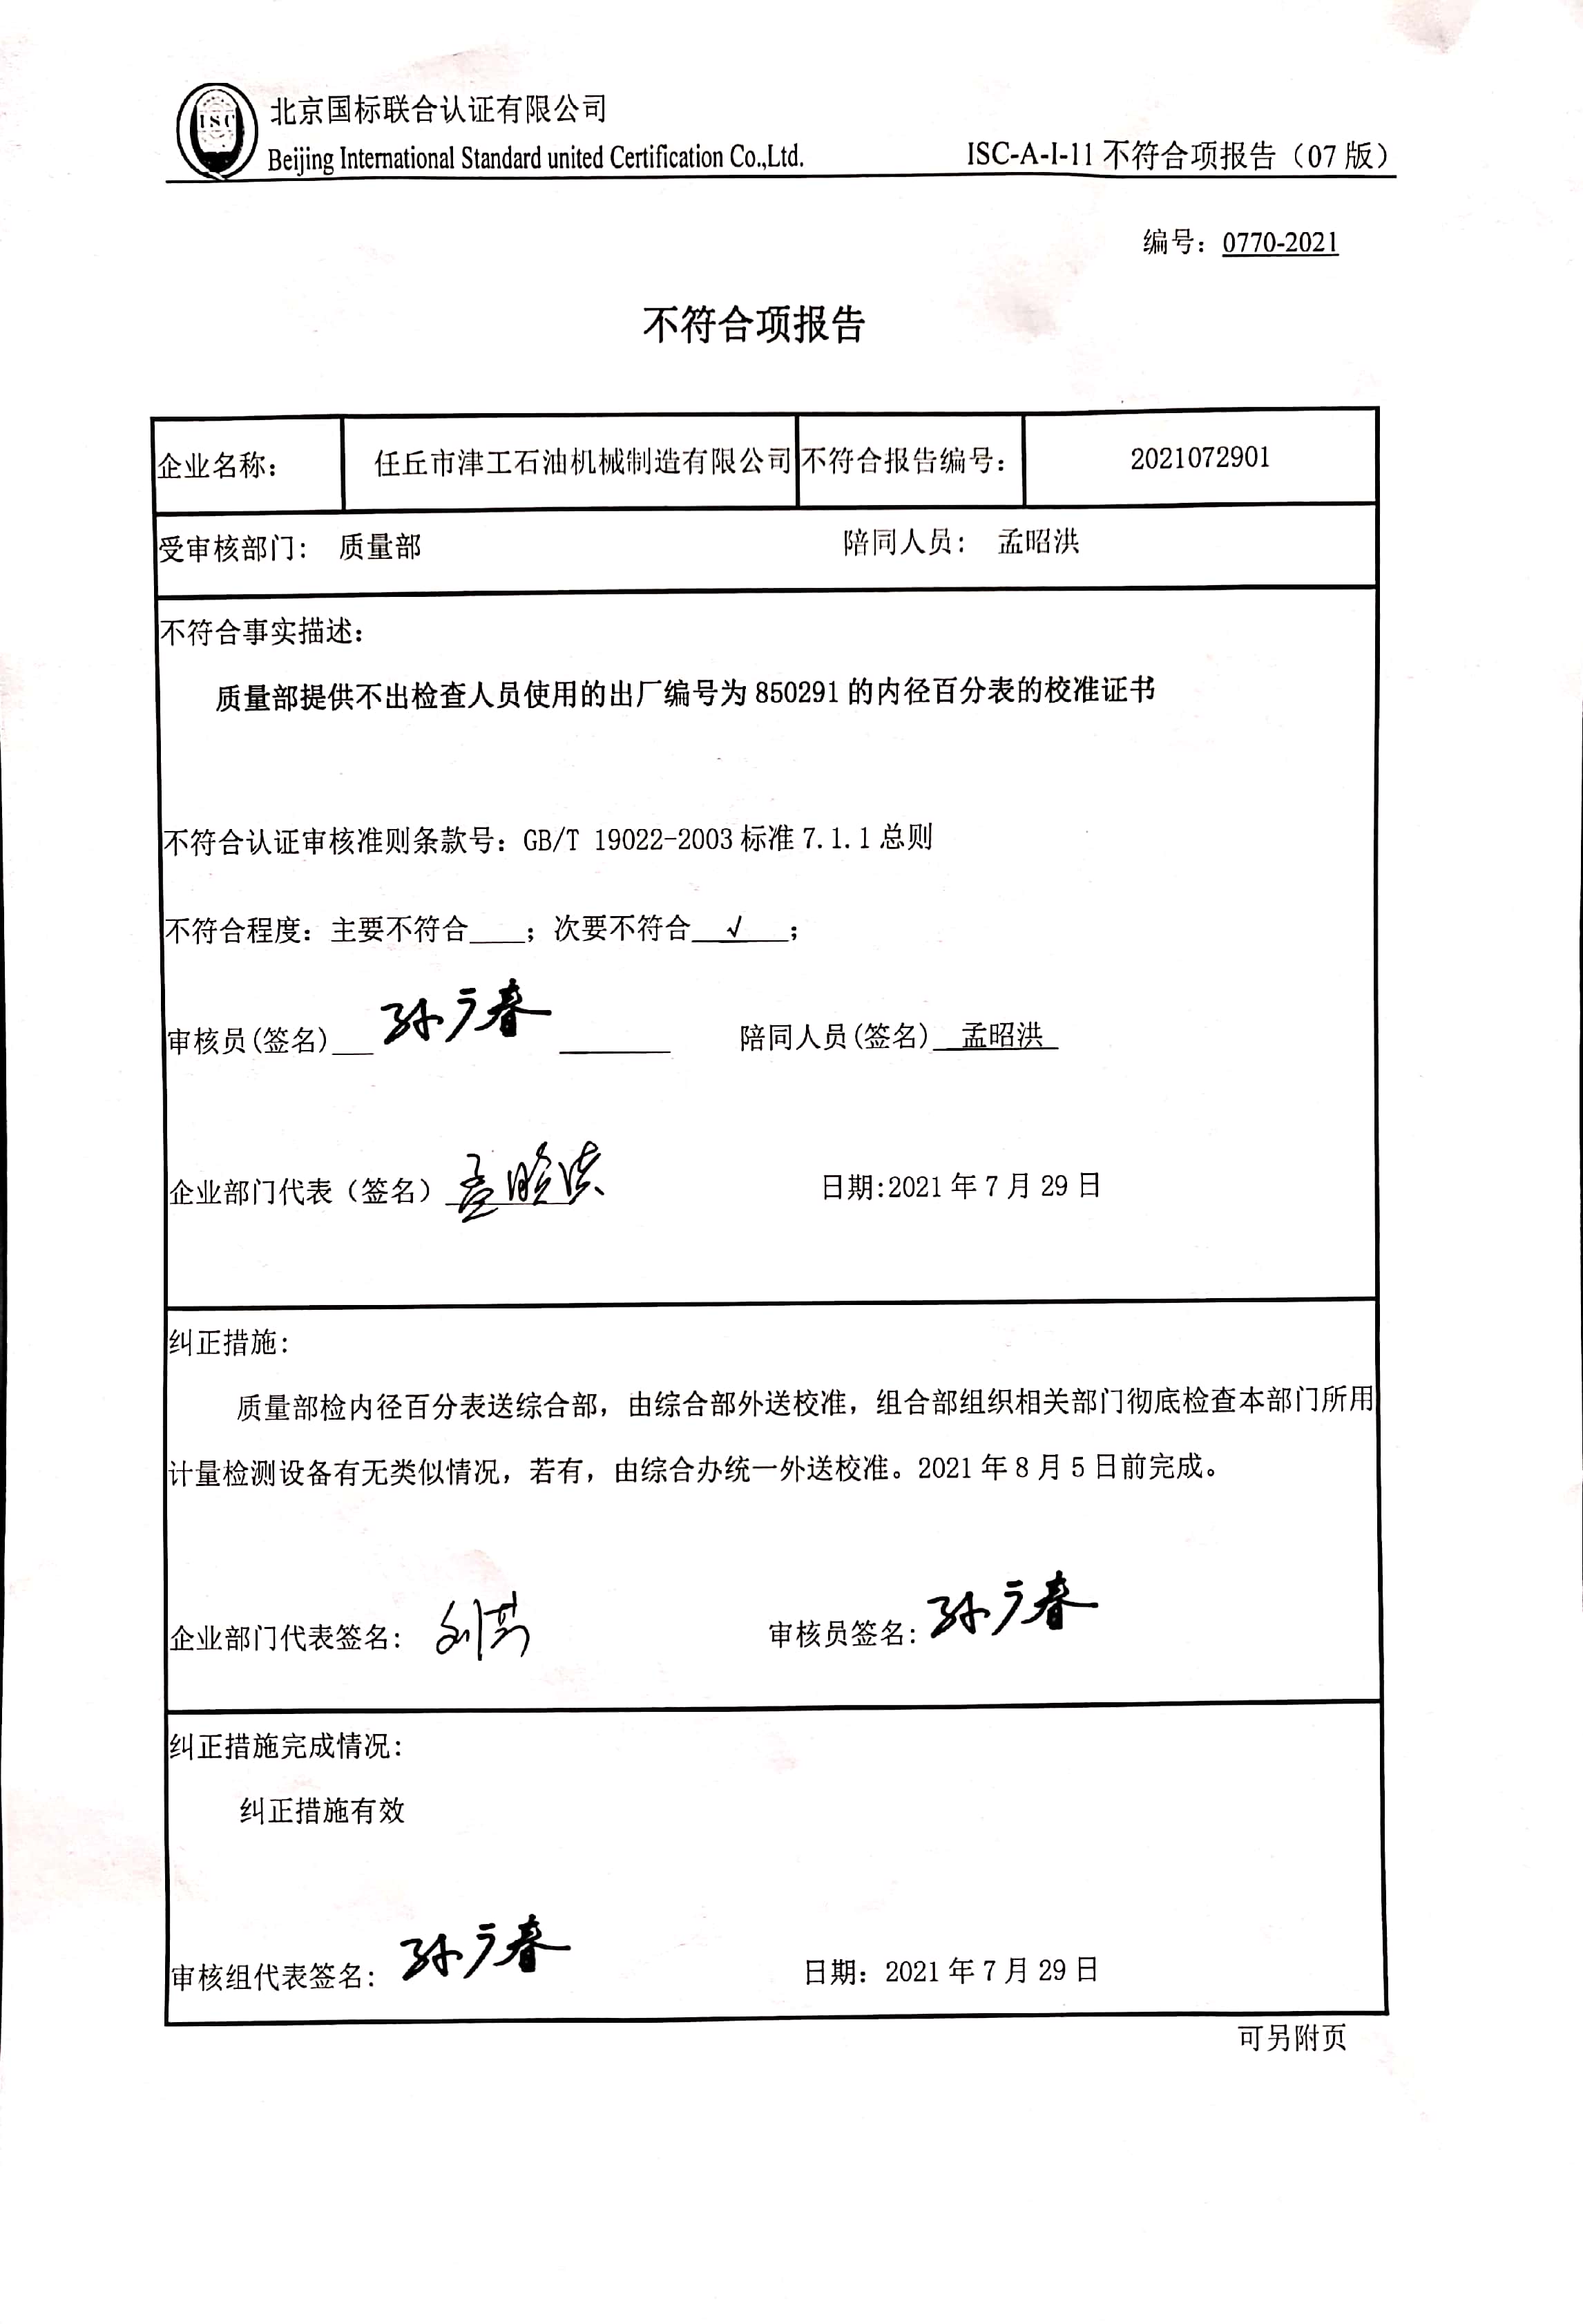 ISC
北京国标联合认证有限公司
Beijing International Standard united Certification Co.,Ltd.
ISC-A-I-11 不符合项报告（07 版）
编号：0770-2021
不符合项报告
企业名称： 任丘市津工石油机械制造有限公司 不符合报告编号： 2021072901
受审核部门： 质量部 陪同人员： 孟昭洪
不符合事实描述：
质量部提供不出检查人员使用的出厂编号为 850291 的内径百分表的校准证书
不符合认证审核准则条款号：GB/T 19022-2003 标准 7.1.1 总则
不符合程度：主要不符合____；次要不符合 √ ；
审核员(签名) 孙广春 陪同人员(签名) 孟昭洪
企业部门代表（签名） 孟昭洪 日期:2021 年 7 月 29 日
纠正措施：
质量部检内径百分表送综合部，由综合部外送校准，组合部组织相关部门彻底检查本部门所用
计量检测设备有无类似情况，若有，由综合办统一外送校准。2021 年 8 月 5 日前完成。
企业部门代表签名： 审核员签名：孙广春
纠正措施完成情况：
纠正措施有效
审核组代表签名： 孙广春 日期：2021 年 7 月 29 日
可另附页